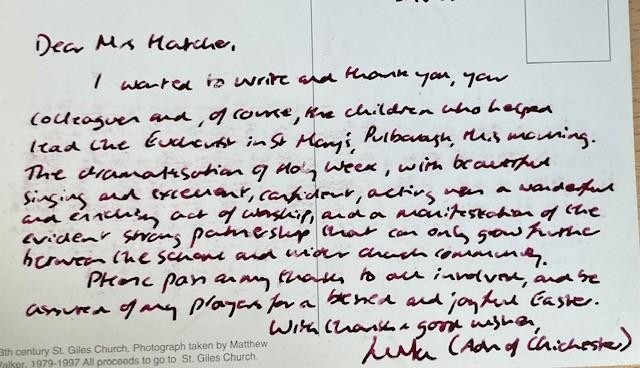 Dear Mrs Hatcher,
I wanted to write and thank you, your
colleagues and, of course, the children who helped
lead the Eucharist in St Mary's, Pulborough, this morning.
The dramatisation of Holy Week, with beautiful
singing and excellent, confident, acting was a wonderful
and enriching act of worship, and a manifestation of the
evident strong partnership that can only grow further
between the school and wider church community.
Please pass on my thanks to all involved, and be
assured of my prayers for a blessed and joyful Easter.
With thanks & good wishes,
Luke (Adn of Chichester)
3th century St. Giles Church. Photograph taken by Matthew
Walker, 1979-1997 All proceeds go to St. Giles Church.